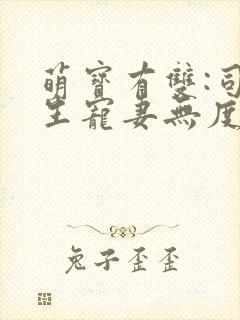 萌寶有雙:司
生寵妻無度
兔子歪歪